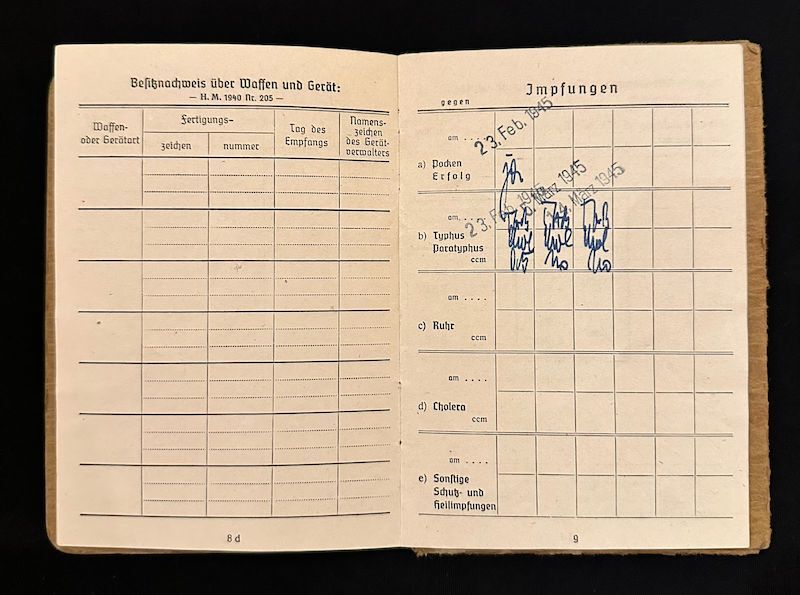 Besitznachweis über Waffen und Gerät:
— H. M. 1940 Nr. 205 —
Waffen-
oder Gerätart
Fertigungs-
zeichen
nummer
Tag des
Empfangs
Namens-
zeichen
des Gerät-
verwalters
8 d
Impfungen
gegen
am ....
23. Feb. 1945
a) Pocken
Erfolg
ja
am ....
23. Feb. 1945
März 1945
März 1945
b) Typhus
Paratyphus
ccm
am ....
c) Ruhr
ccm
am ....
d) Cholera
ccm
am ....
e) Sonstige
Schutz- und
Heilimpfungen
9